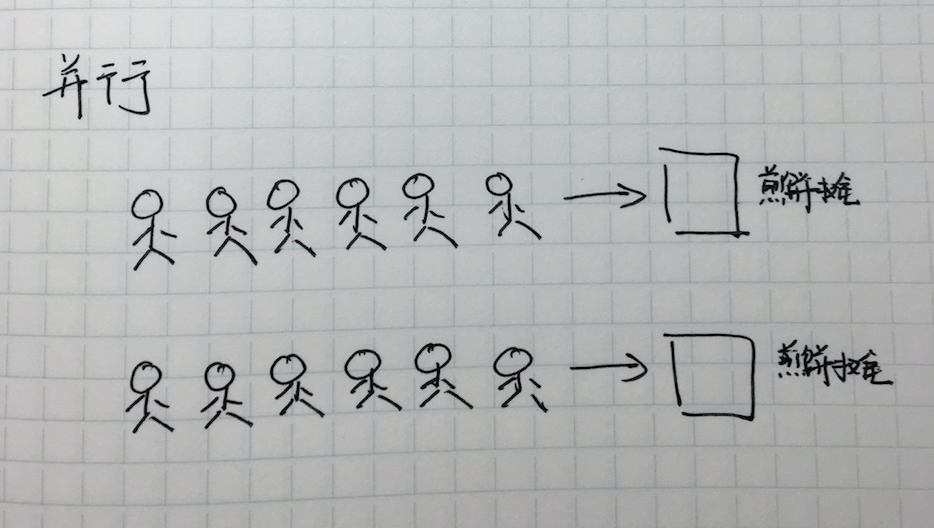 并行
煎饼摊
煎饼摊